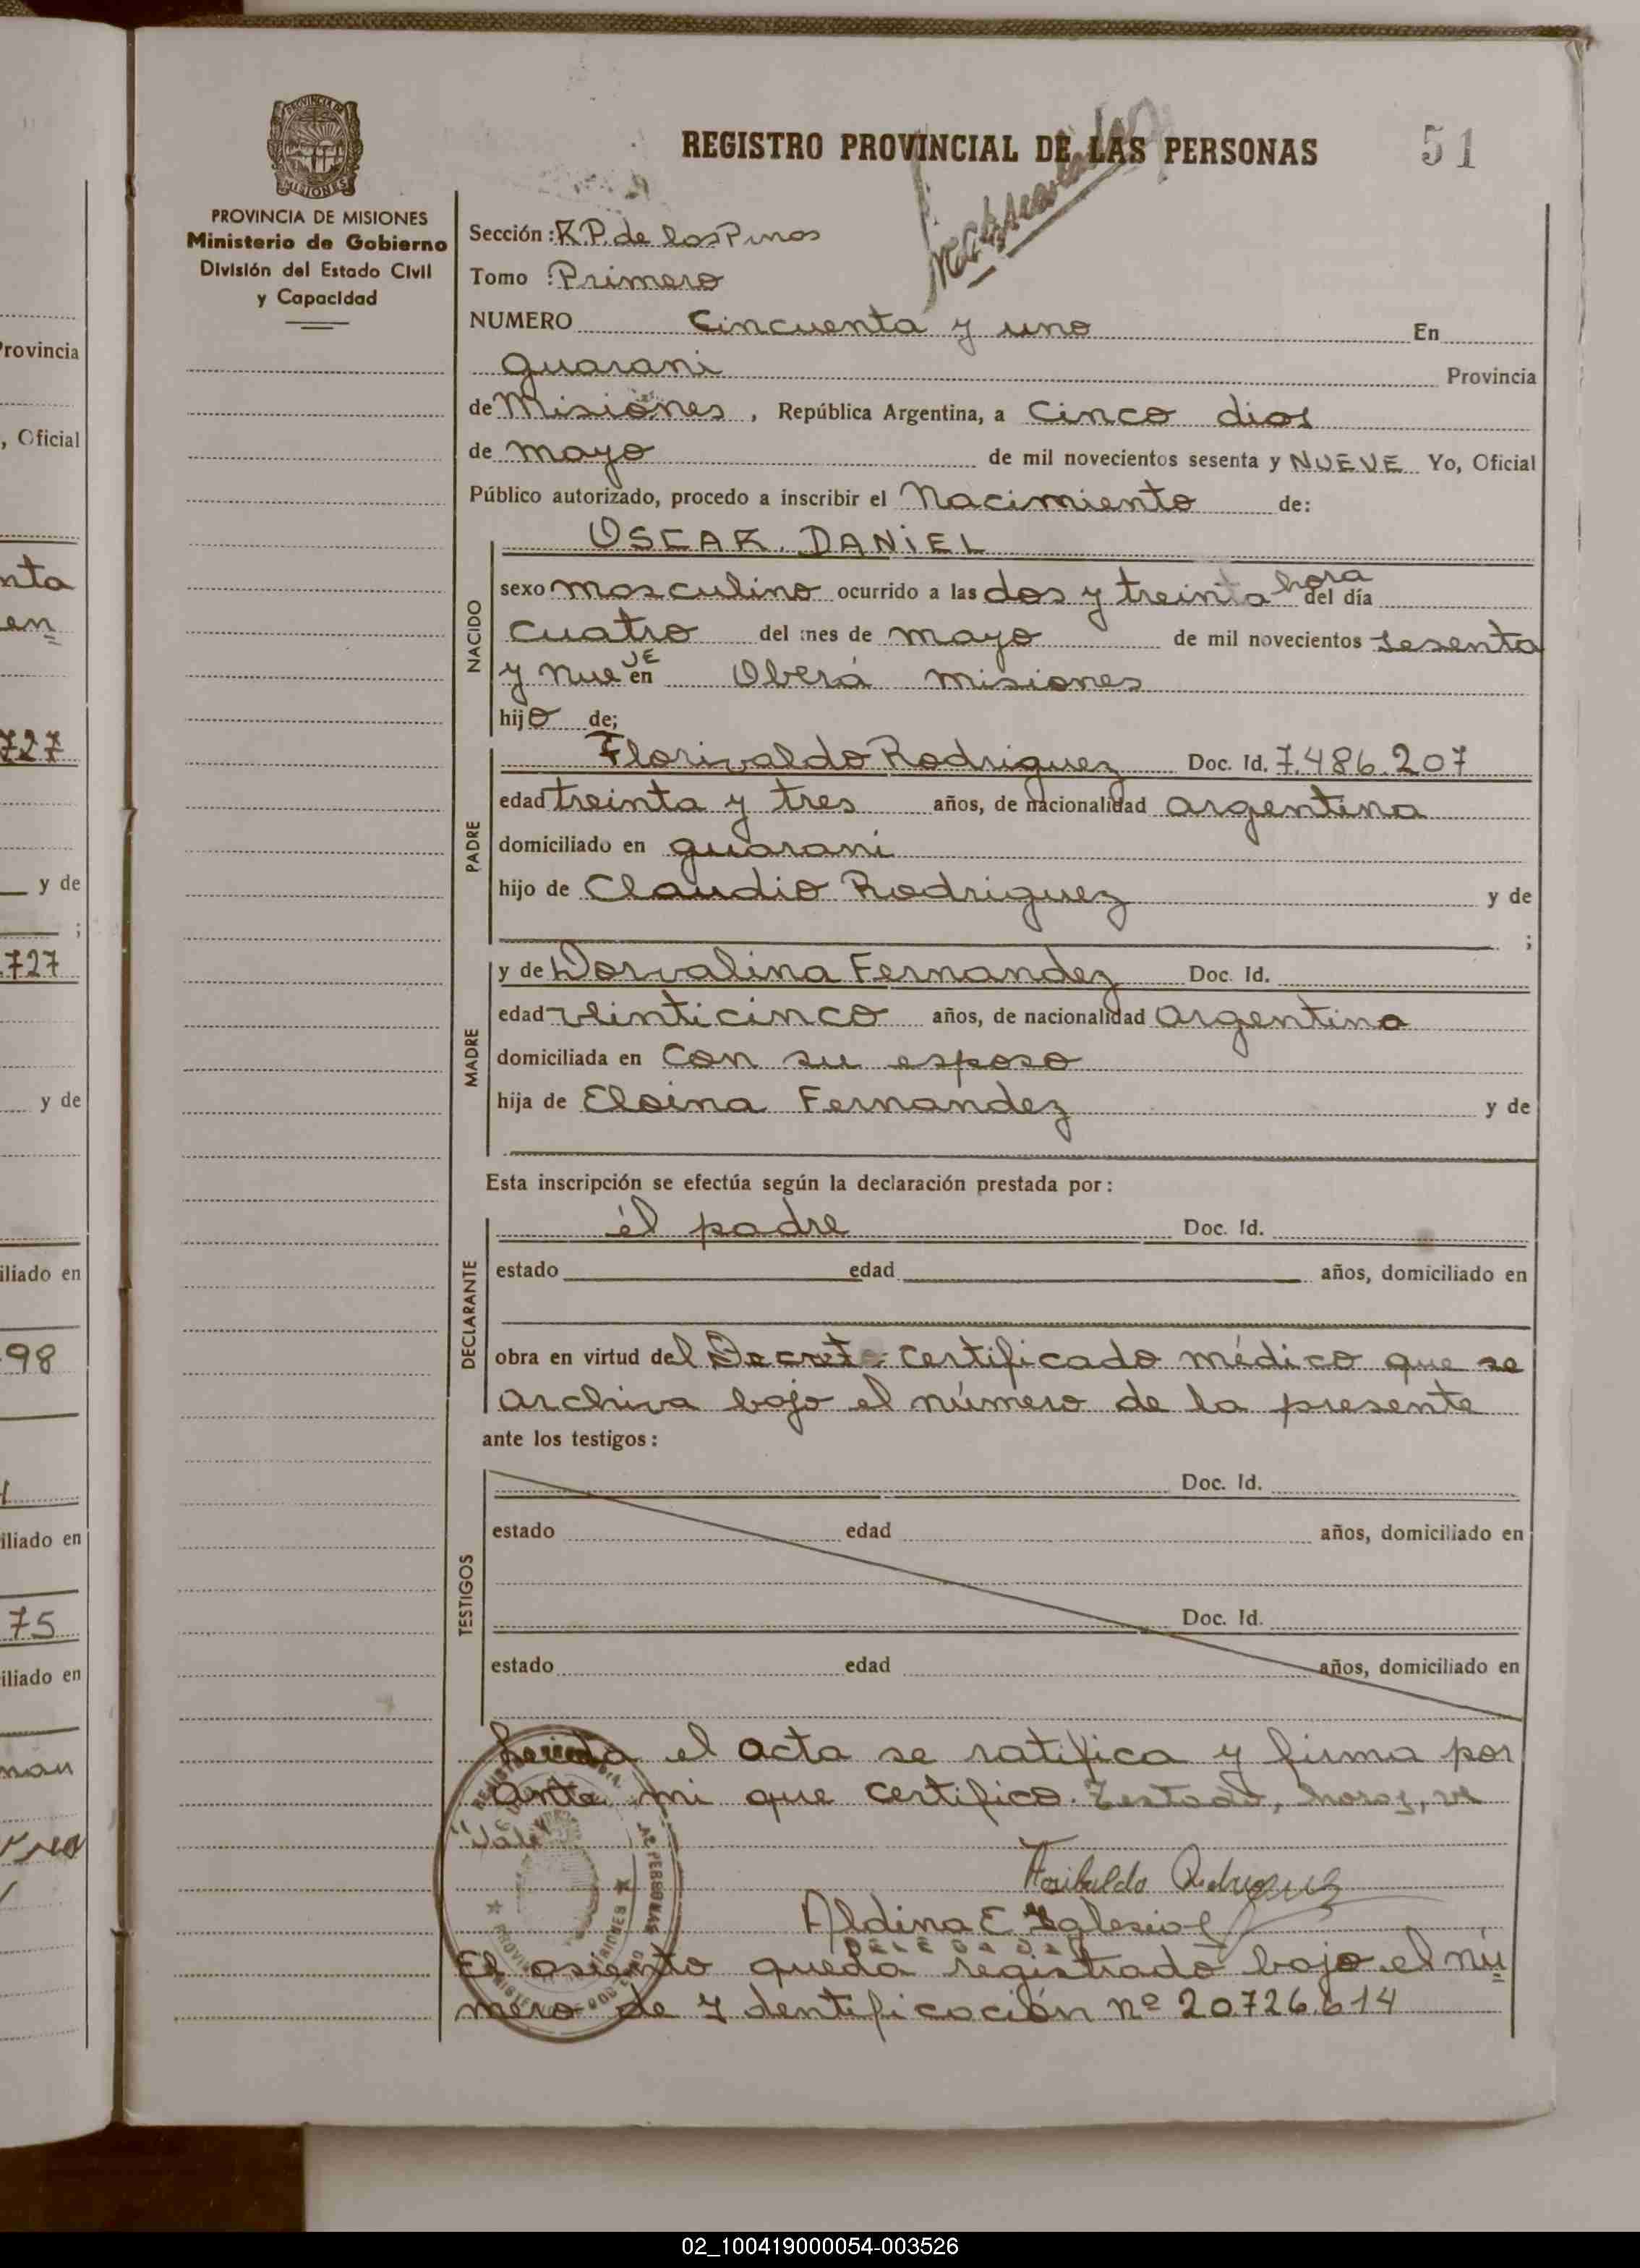 REGISTRO PROVINCIAL DE LAS PERSONAS
51
PROVINCIA DE MISIONES
Ministerio de Gobierno
División del Estado Civil
y Capacidad
Sección: R.P. de los Pinos
Tomo: Primero
NUMERO Cincuenta y uno En
guarani Provincia
de Misiones, República Argentina, a Cinco dias
de mayo de mil novecientos sesenta y NUEVE Yo, Oficial
Público autorizado, procedo a inscribir el Nacimiento de:
OSCAR. DANIEL
NACIDO
sexo masculino ocurrido a las dos y treinta hora del día
cuatro del mes de mayo de mil novecientos sesenta
y nueve en Oberá misiones
hijo de;
PADRE
Florivaldo Rodriguez Doc. Id. 7.486.207
edad treinta y tres años, de nacionalidad argentina
domiciliado en guarani
hijo de Claudio Rodriguez y de
;
MADRE
y de Dorvalina Fernandez Doc. Id.
edad veinticinco años, de nacionalidad argentina
domiciliada en con su esposo
hija de Eloina Fernandez y de
Esta inscripción se efectúa según la declaración prestada por:
DECLARANTE
él padre Doc. Id.
estado edad años, domiciliado en
obra en virtud del certificado médico que se
archiva bajo el número de la presente
ante los testigos:
TESTIGOS
Doc. Id.
estado edad años, domiciliado en
Doc. Id.
estado edad años, domiciliado en
el acta se ratifica y firma por
ante mi que certifico. Testado, horas,
Vale
Aldina E. Iglesias
El asiento queda registrado bajo el nú
mero de Ydentificación nº 20.726.614
Provincia
, Oficial
nta
en
727
y de
;
727
y de
iliado en
98
iliado en
75
iliado en
02_100419000054-003526